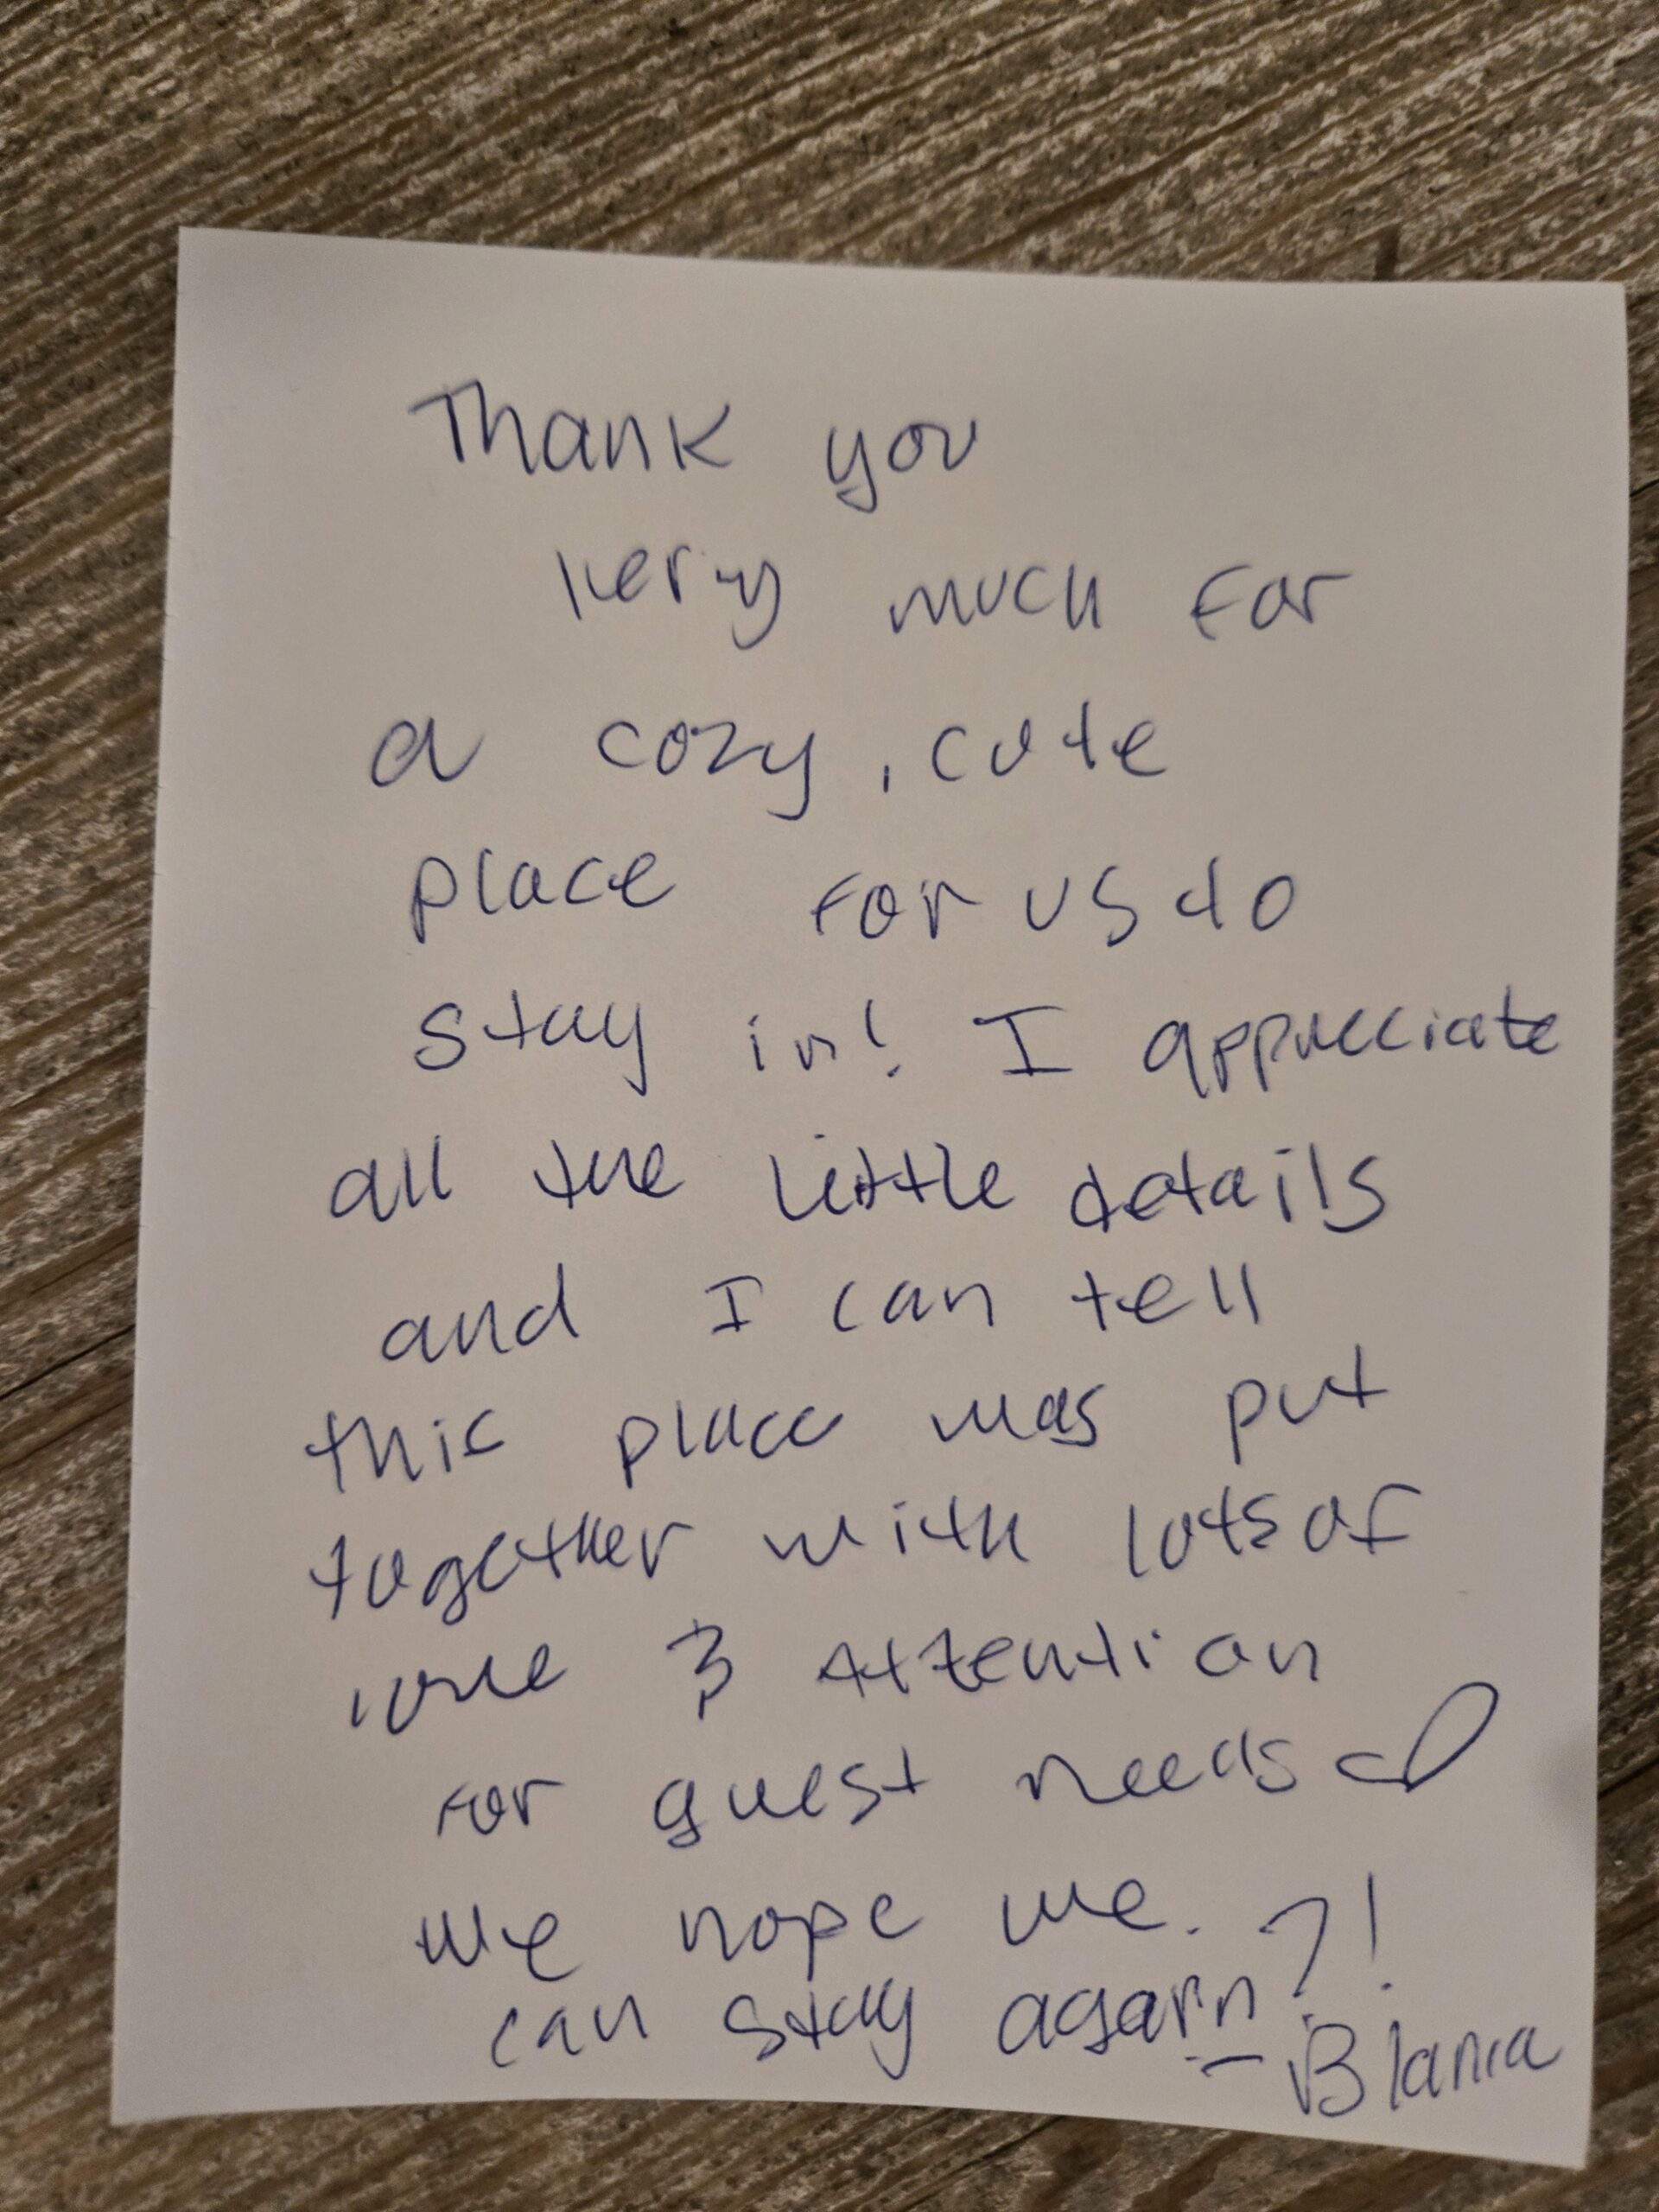 Thank you
very much for
a cozy, cute
place for us to
stay in! I appreciate
all the little details
and I can tell
this place was put
together with lots of
love & Attention
for guest needs
We hope we
can stay again?!